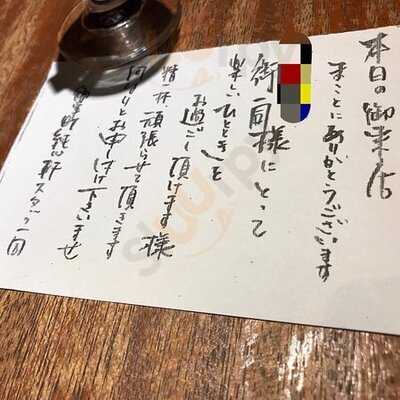 本日の御来店
まことにありがとうございます
御一同様にとって
楽しいひとときを
お過ごし頂けます様
精一杯頑張らせて頂きます
何なりとお申し付け下さいませ
スタッフ一同